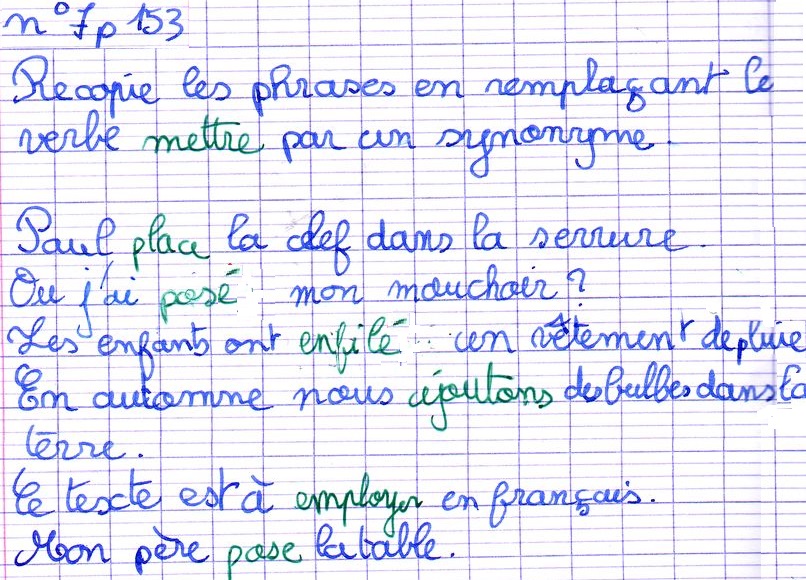 n°7p 153
Recopie les phrases en remplaçant le
verbe mettre par un synonyme.
Paul place la clef dans la serrure.
Ou j'ai posé mon mouchoir ?
Les enfants ont enfilé un vêtement de pluie
En automne nous ajoutons des bulbes dans la
terre.
Ce texte est à employer en français.
Mon père pose la table.